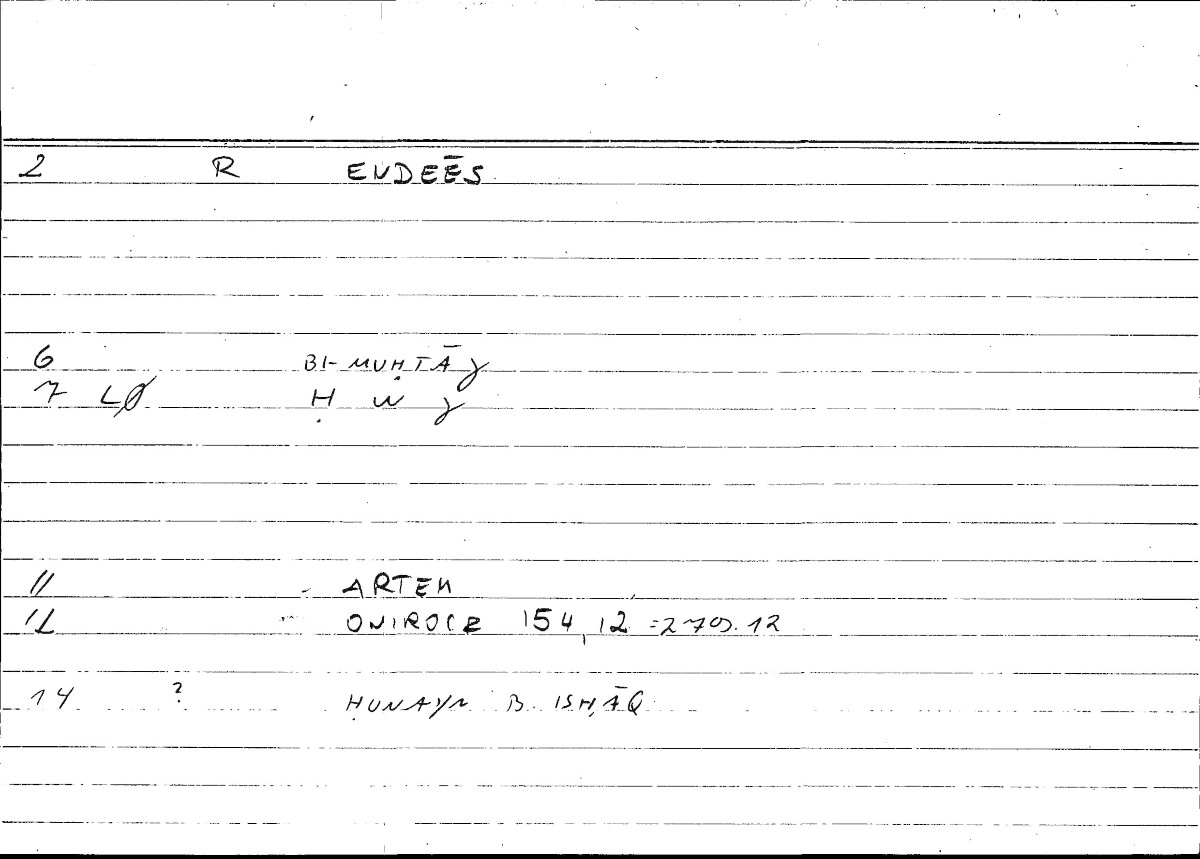 2 R ENDEĒS
6 BI-MUḤTĀǧ
7 LØ Ḥ W ǧ
11 ARTEM
12 ONIROCR 154,12 = 270.12
14 ? ḤUNAYN B. ISḤĀQ